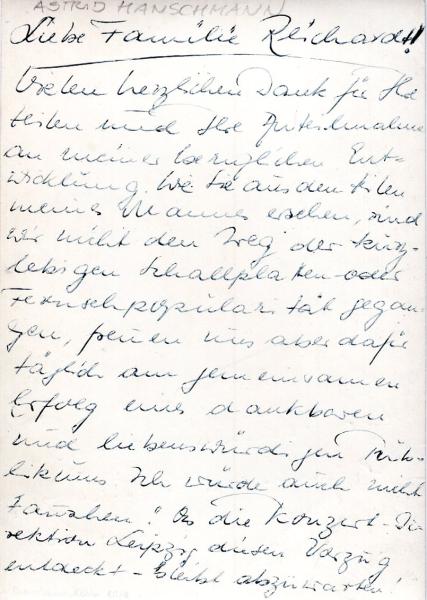 ASTRID HANSCHMANN
Liebe Familie Reichardt!
Vielen herzlichen Dank für Ihr
teilen und Ihre Anteilnahme
an meiner beruflichen Ent-
wicklung. Wie Sie aus den Zeilen
meines Mannes ersehen, sind
wir nicht den Weg der kurz-
lebigen Schallplatten- oder
Fernsehpopularität gegan-
gen, freuen uns aber dafür
täglich am gemeinsamen
Erfolg eines dankbaren
und liebenswürdigen Pub-
likums. Ich würde auch nicht
"tauschen". Ob die Konzert-Di-
rektion Leipzig diesen Vorzug
entdeckt - bleibt abzuwarten!